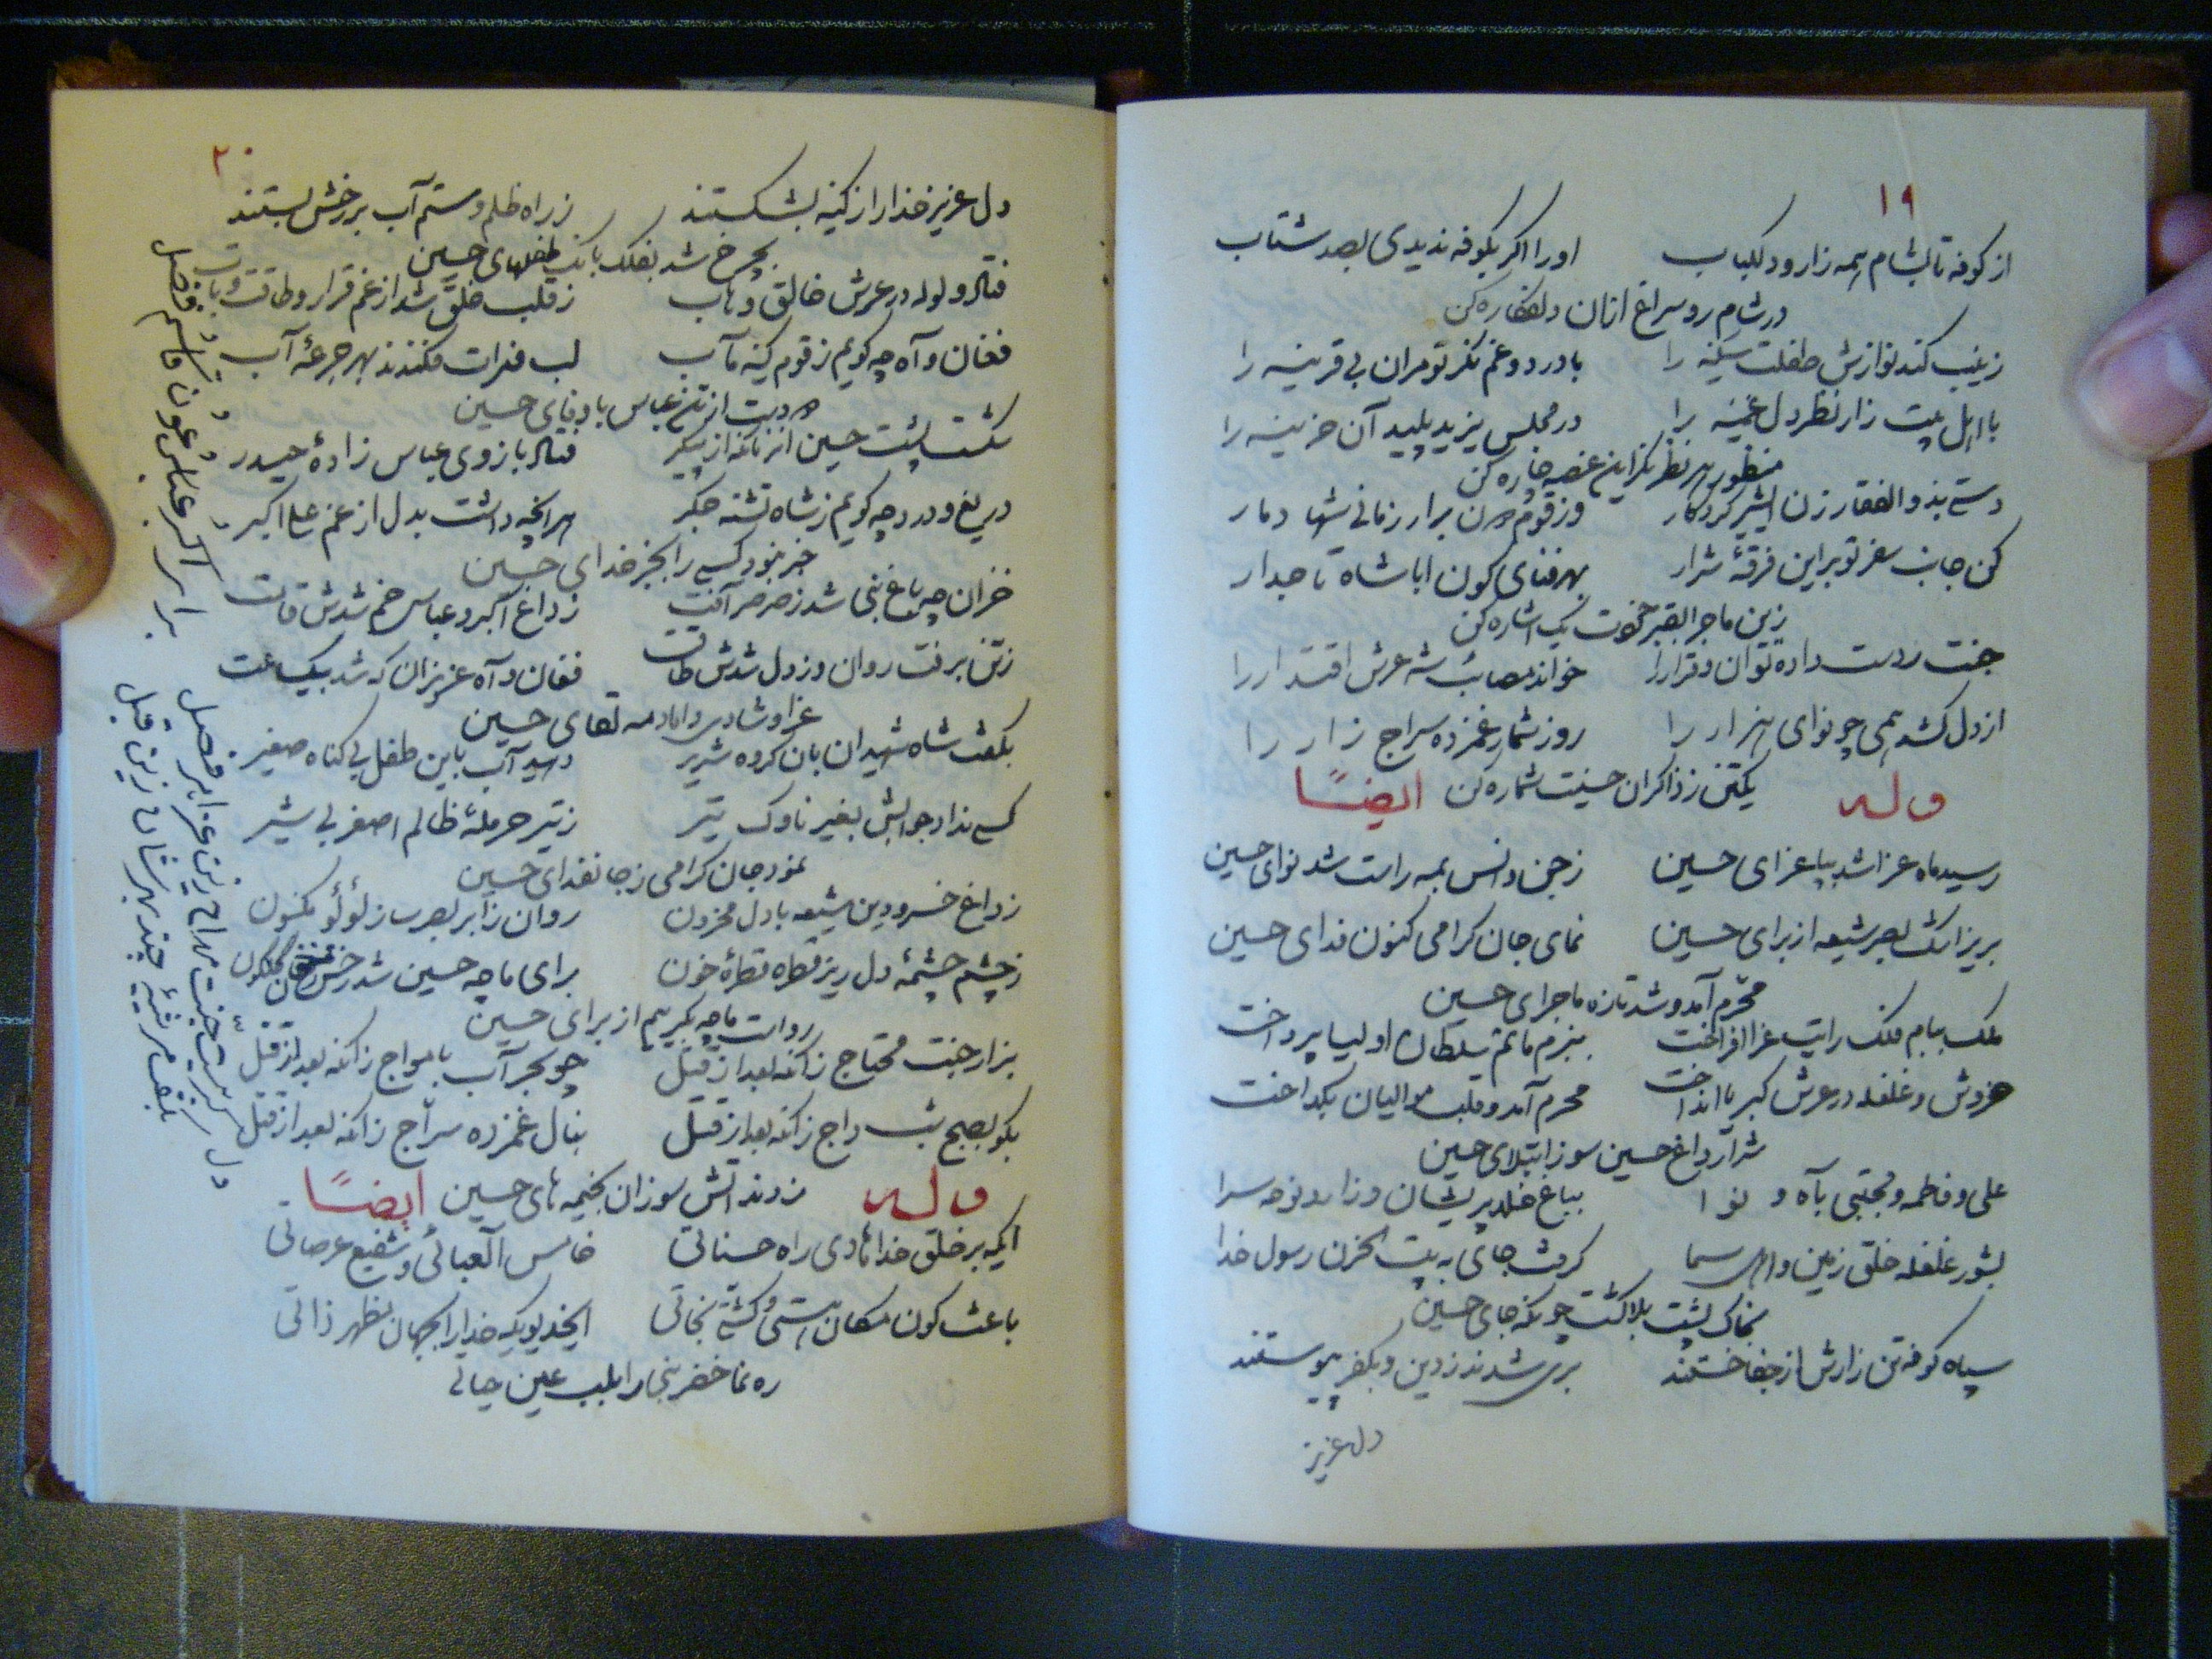 ۱۹
از کوفه تا بشام همه زار و دلکباب اورا اگر بکوفه ندیدی بصد شتاب
در شام رو سراغ ازان دلفکاره کن
زینب کند نوازش طفلت سکینه را با درد و غم نگر تو مران بی قرینه را
با اهل بیت زار نظر دل غمینه را در مجلس یزید پلید آن حزینه را
منظور هر نظر نگر این غصه چاره کن
دستی بذوالفقار زن ای شیر کردکار وز قوم دون برار زمانی شها دمار
کن جانب سقر تو براین فرقهٔ شرار بهر فنای کون ایا شاه تاجدار
زین ماجرا بقنبر خودت یک اشاره کن
جنت ز دست داده توان و قرار را خواند مصائب شه عرش اقتدار را
از دل کشد همی چو نوای هزار را روز شمار غمزده سراج زار را
وله یکتن ز ذاکران حسینت شماره کن ایضاً
رسید ماه عزا شد بپا عزای حسین ز جن و انس همه راست شد نوای حسین
بریز اشک بصر شیعه از برای حسین نمای جان کرامی کنون فدای حسین
محرّم آمد و شد تازه ماجرای حسین
ملک ببام فلک رایت عزا افراخت ببزم ماتم سلطان اولیا پرداخت
خروش و غلغله در عرش کبریا انداخت محرم آمد و قلب موالیان بگداخت
شرار داغ حسین سوز ابتلای حسین
علی و فاطمه و مجتبی بآه و نوا بباغ خلد پریشان و زار و نوحه سرا
بشور غلغله خلق زمین و اهل سما گرفت جای به بیت الحزن رسول خدا
بخاک پشت بلا گشت چونکه جای حسین
سپاه کوفه تن زارش از جفا خستند بری شدند ز دین و بکفر پیوستند
دل عزیز
۲۰
دل عزیز خدا را ز کینه بشکستند ز راه ظلم و ستم آب بر رخش بستند
بچرخ شد بفلک بانگ طفلهای حسین
فتاد ولوله در عرش خالق وهاب ز قلب خلق شد از غم قرار و طاقت و تاب
فغان و آه چه کویم ز قوم کینه مآب لب فرات فکندند بهر جرعهٔ آب
دو دست از تن عباس با وفای حسین
شکست پشت حسین انزمانکه از پیکر فتاد بازوی عباس زادهٔ حیدر
دریغ و درد چه کویم ز شاه تشنه جکر هرانچه داشت بدل از غم علی اکبر
خبر نبود کسی را بجز خدای حسین
خزان چه باغ نبی شد ز صرصر آفت ز داغ اکبر و عباس خم شدش قامت
ز تن برفت روان و ز دل شدش طاقت فغان و آه عزیزان که شد بیک ساعت
عزا و شادی داماد مه لقای حسین
بگفت شاه شهیدان بان کروه شریر دهید آب باین طفل بی کناه صغیر
کسی نداد جوابش بغیر ناوک تیر ز تیر حرملهٔ ظالم اصغر بی شیر
نمود جان کرامی ز جانفدای حسین
ز داغ خسرو دین شیعه با دل محزون روان ز ابر بصر ساز لؤلؤ مکنون
ز چشم چشمهٔ دل ریز قطره قطرهٔ خون برای ما چه حسین شد رخش ز خون گلگون
رواست ما چه بگرییم از برای حسین
هزار جنت محتاج زانکه بعد از قتل چو بحر آب بامواج زانکه بعد از قتل
بکو بصبح و شب داج زانکه بعد از قتل بنال غمزده سراج زانکه بعد از قتل
وله زدند آتش سوزان بخیمه های حسین ایضاً
ایکه بر خلق خدا هادی راه حسناتی خامس آل عبائی و شفیع عرصاتی
باعث کون مکان هستی و کشتی نجاتی ایخدیویکه خدا را بجهان مظهر ذاتی
ره نما خضر نبی را بلب عین حیاتی